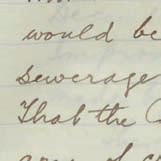 would be
sewerage
That the